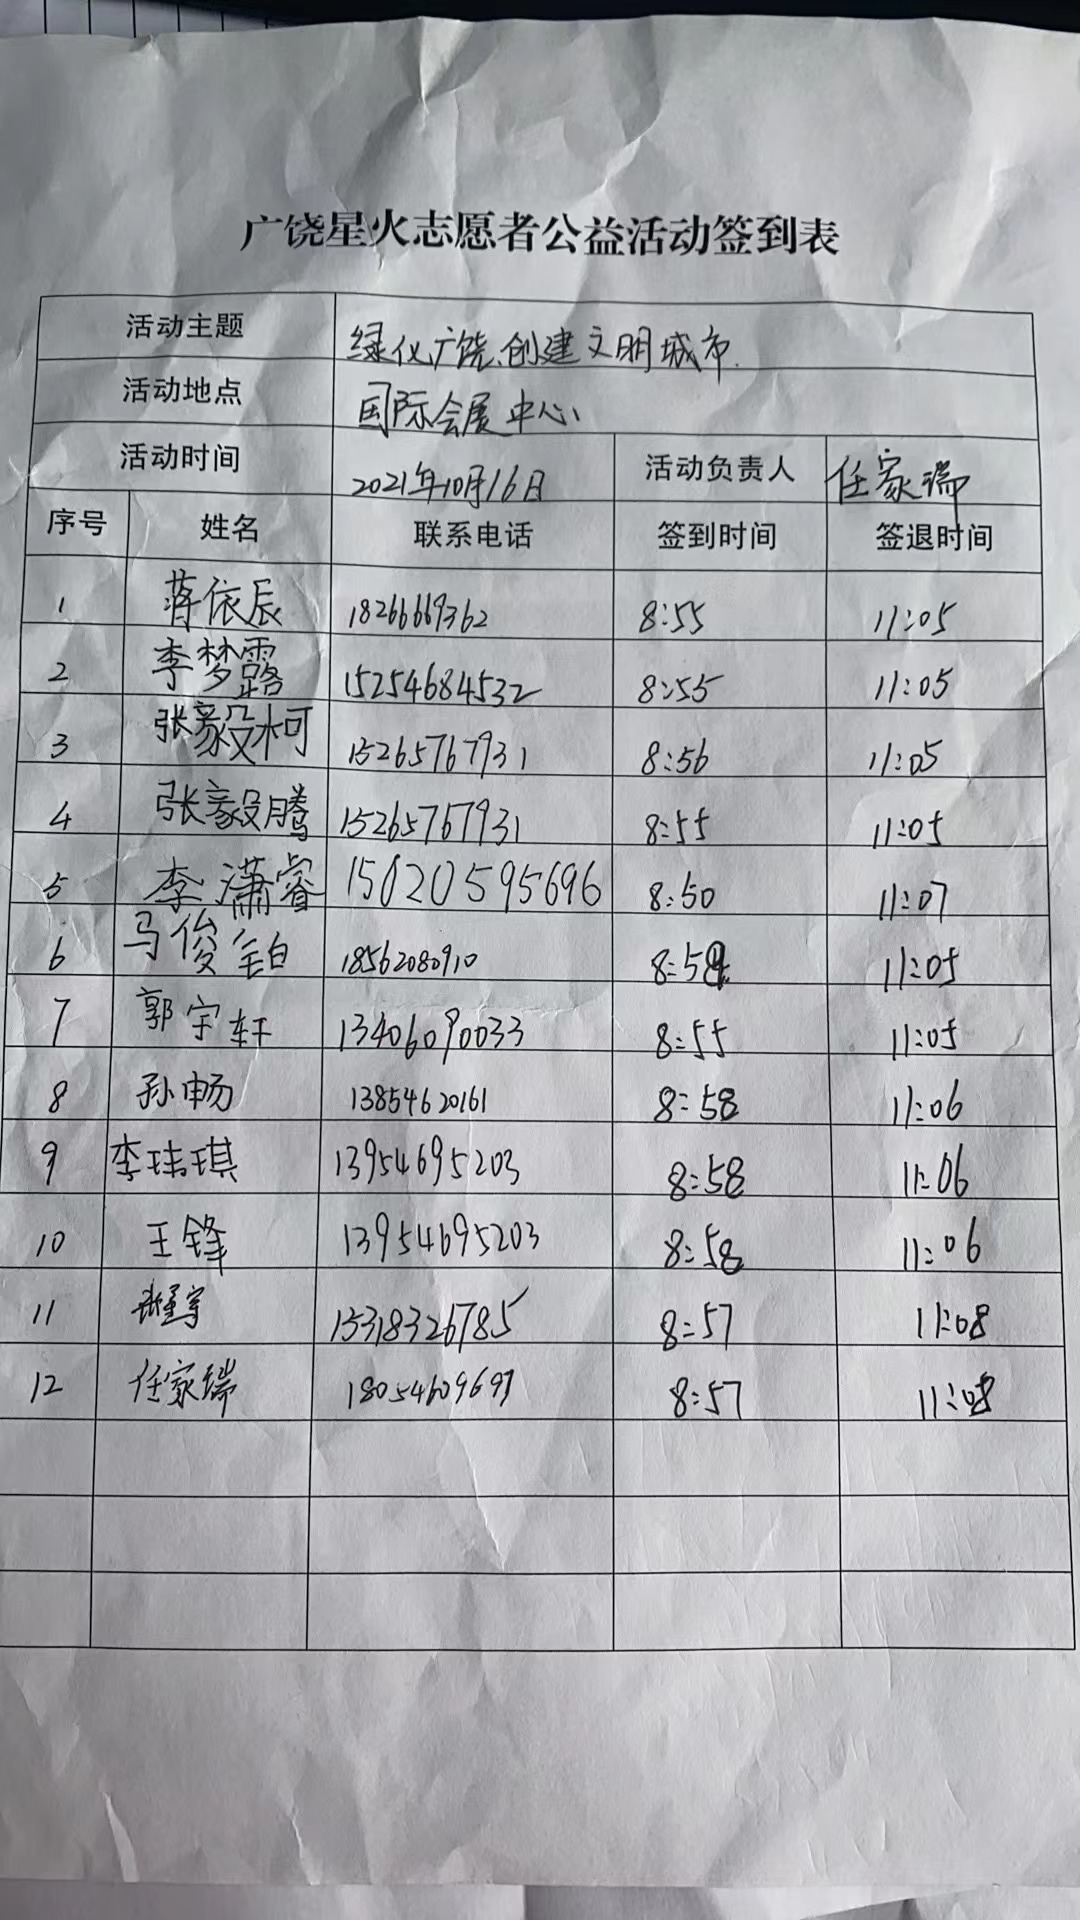 广饶星火志愿者公益活动签到表
活动主题 绿化广饶、创建文明城市.
活动地点 国际会展中心
活动时间 2021年10月16日 活动负责人 任家瑞
序号 姓名 联系电话 签到时间 签退时间
1 蒋依辰 18266669362 8:55 11:05
2 李梦露 15254684532 8:55 11:05
3 张毅柯 15265767931 8:56 11:05
4 张毅腾 15265767931 8:55 11:05
5 李潇睿 15020595696 8:50 11:07
6 马俊铂 18562080910 11:05
7 郭宇轩 13406090033 8:55 11:05
8 孙畅 13854620161 8:58 11:06
9 李玮琪 13954695203 8:58 11:06
10 王锋 13954695203 8:58 11:06
11 15318326785 8:57 11:08
12 任家瑞 18054609697 8:57 11:08